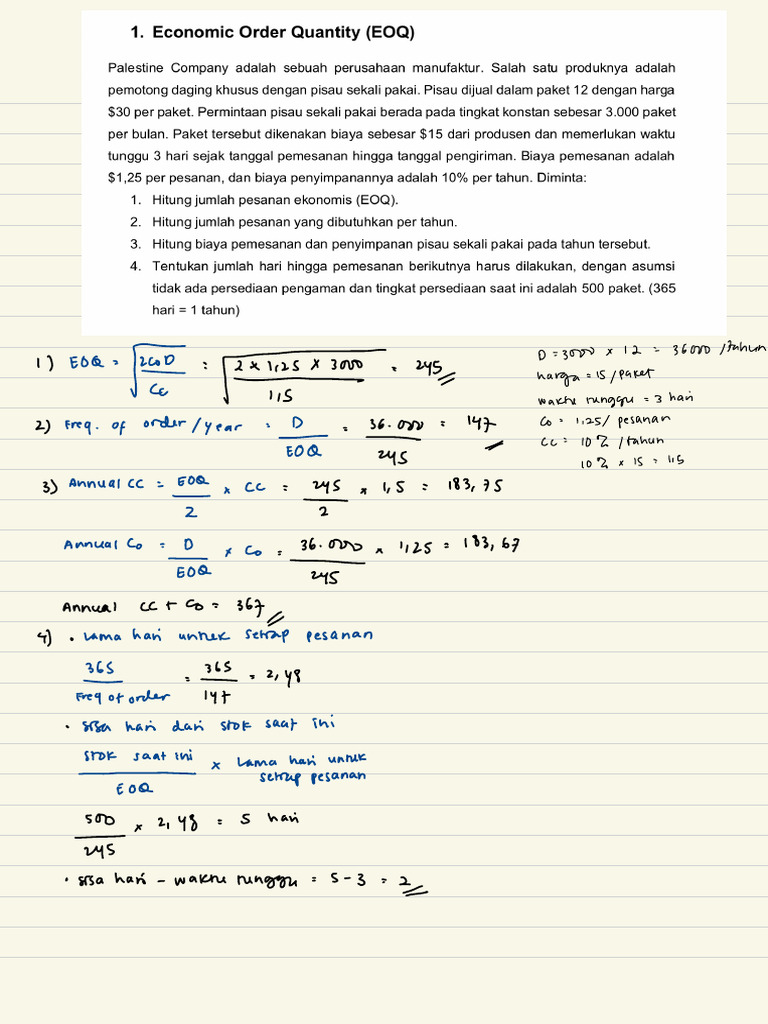 1. Economic Order Quantity (EOQ)
Palestine Company adalah sebuah perusahaan manufaktur. Salah satu produknya adalah
pemotong daging khusus dengan pisau sekali pakai. Pisau dijual dalam paket 12 dengan harga
$30 per paket. Permintaan pisau sekali pakai berada pada tingkat konstan sebesar 3.000 paket
per bulan. Paket tersebut dikenakan biaya sebesar $15 dari produsen dan memerlukan waktu
tunggu 3 hari sejak tanggal pemesanan hingga tanggal pengiriman. Biaya pemesanan adalah
$1,25 per pesanan, dan biaya penyimpanannya adalah 10% per tahun. Diminta:
1. Hitung jumlah pesanan ekonomis (EOQ).
2. Hitung jumlah pesanan yang dibutuhkan per tahun.
3. Hitung biaya pemesanan dan penyimpanan pisau sekali pakai pada tahun tersebut.
4. Tentukan jumlah hari hingga pemesanan berikutnya harus dilakukan, dengan asumsi
tidak ada persediaan pengaman dan tingkat persediaan saat ini adalah 500 paket. (365
hari = 1 tahun)
D = 3000 × 12 = 36000 /tahun
harga = 15 /paket
waktu tunggu = 3 hari
Co = 1,25 / pesanan
CC = 10% / tahun
10% × 15 = 1,5
1) EOQ = √(2CoD / Cc) = √(2 × 1,25 × 3000 / 1,5) = 245
2) Freq. of order / year = D / EOQ = 36.000 / 245 = 147
3) Annual CC = EOQ / 2 × CC = 245 / 2 × 1,5 = 183,75
Annual Co = D / EOQ × Co = 36.000 / 245 × 1,25 = 183,67
Annual CC + Co = 367
4) • Lama hari untuk setiap pesanan
365 / Freq of order = 365 / 147 = 2,48
• sisa hari dari stok saat ini
stok saat ini / EOQ × Lama hari untuk setiap pesanan
500 / 245 × 2,48 = 5 hari
• sisa hari – waktu tunggu = 5 – 3 = 2